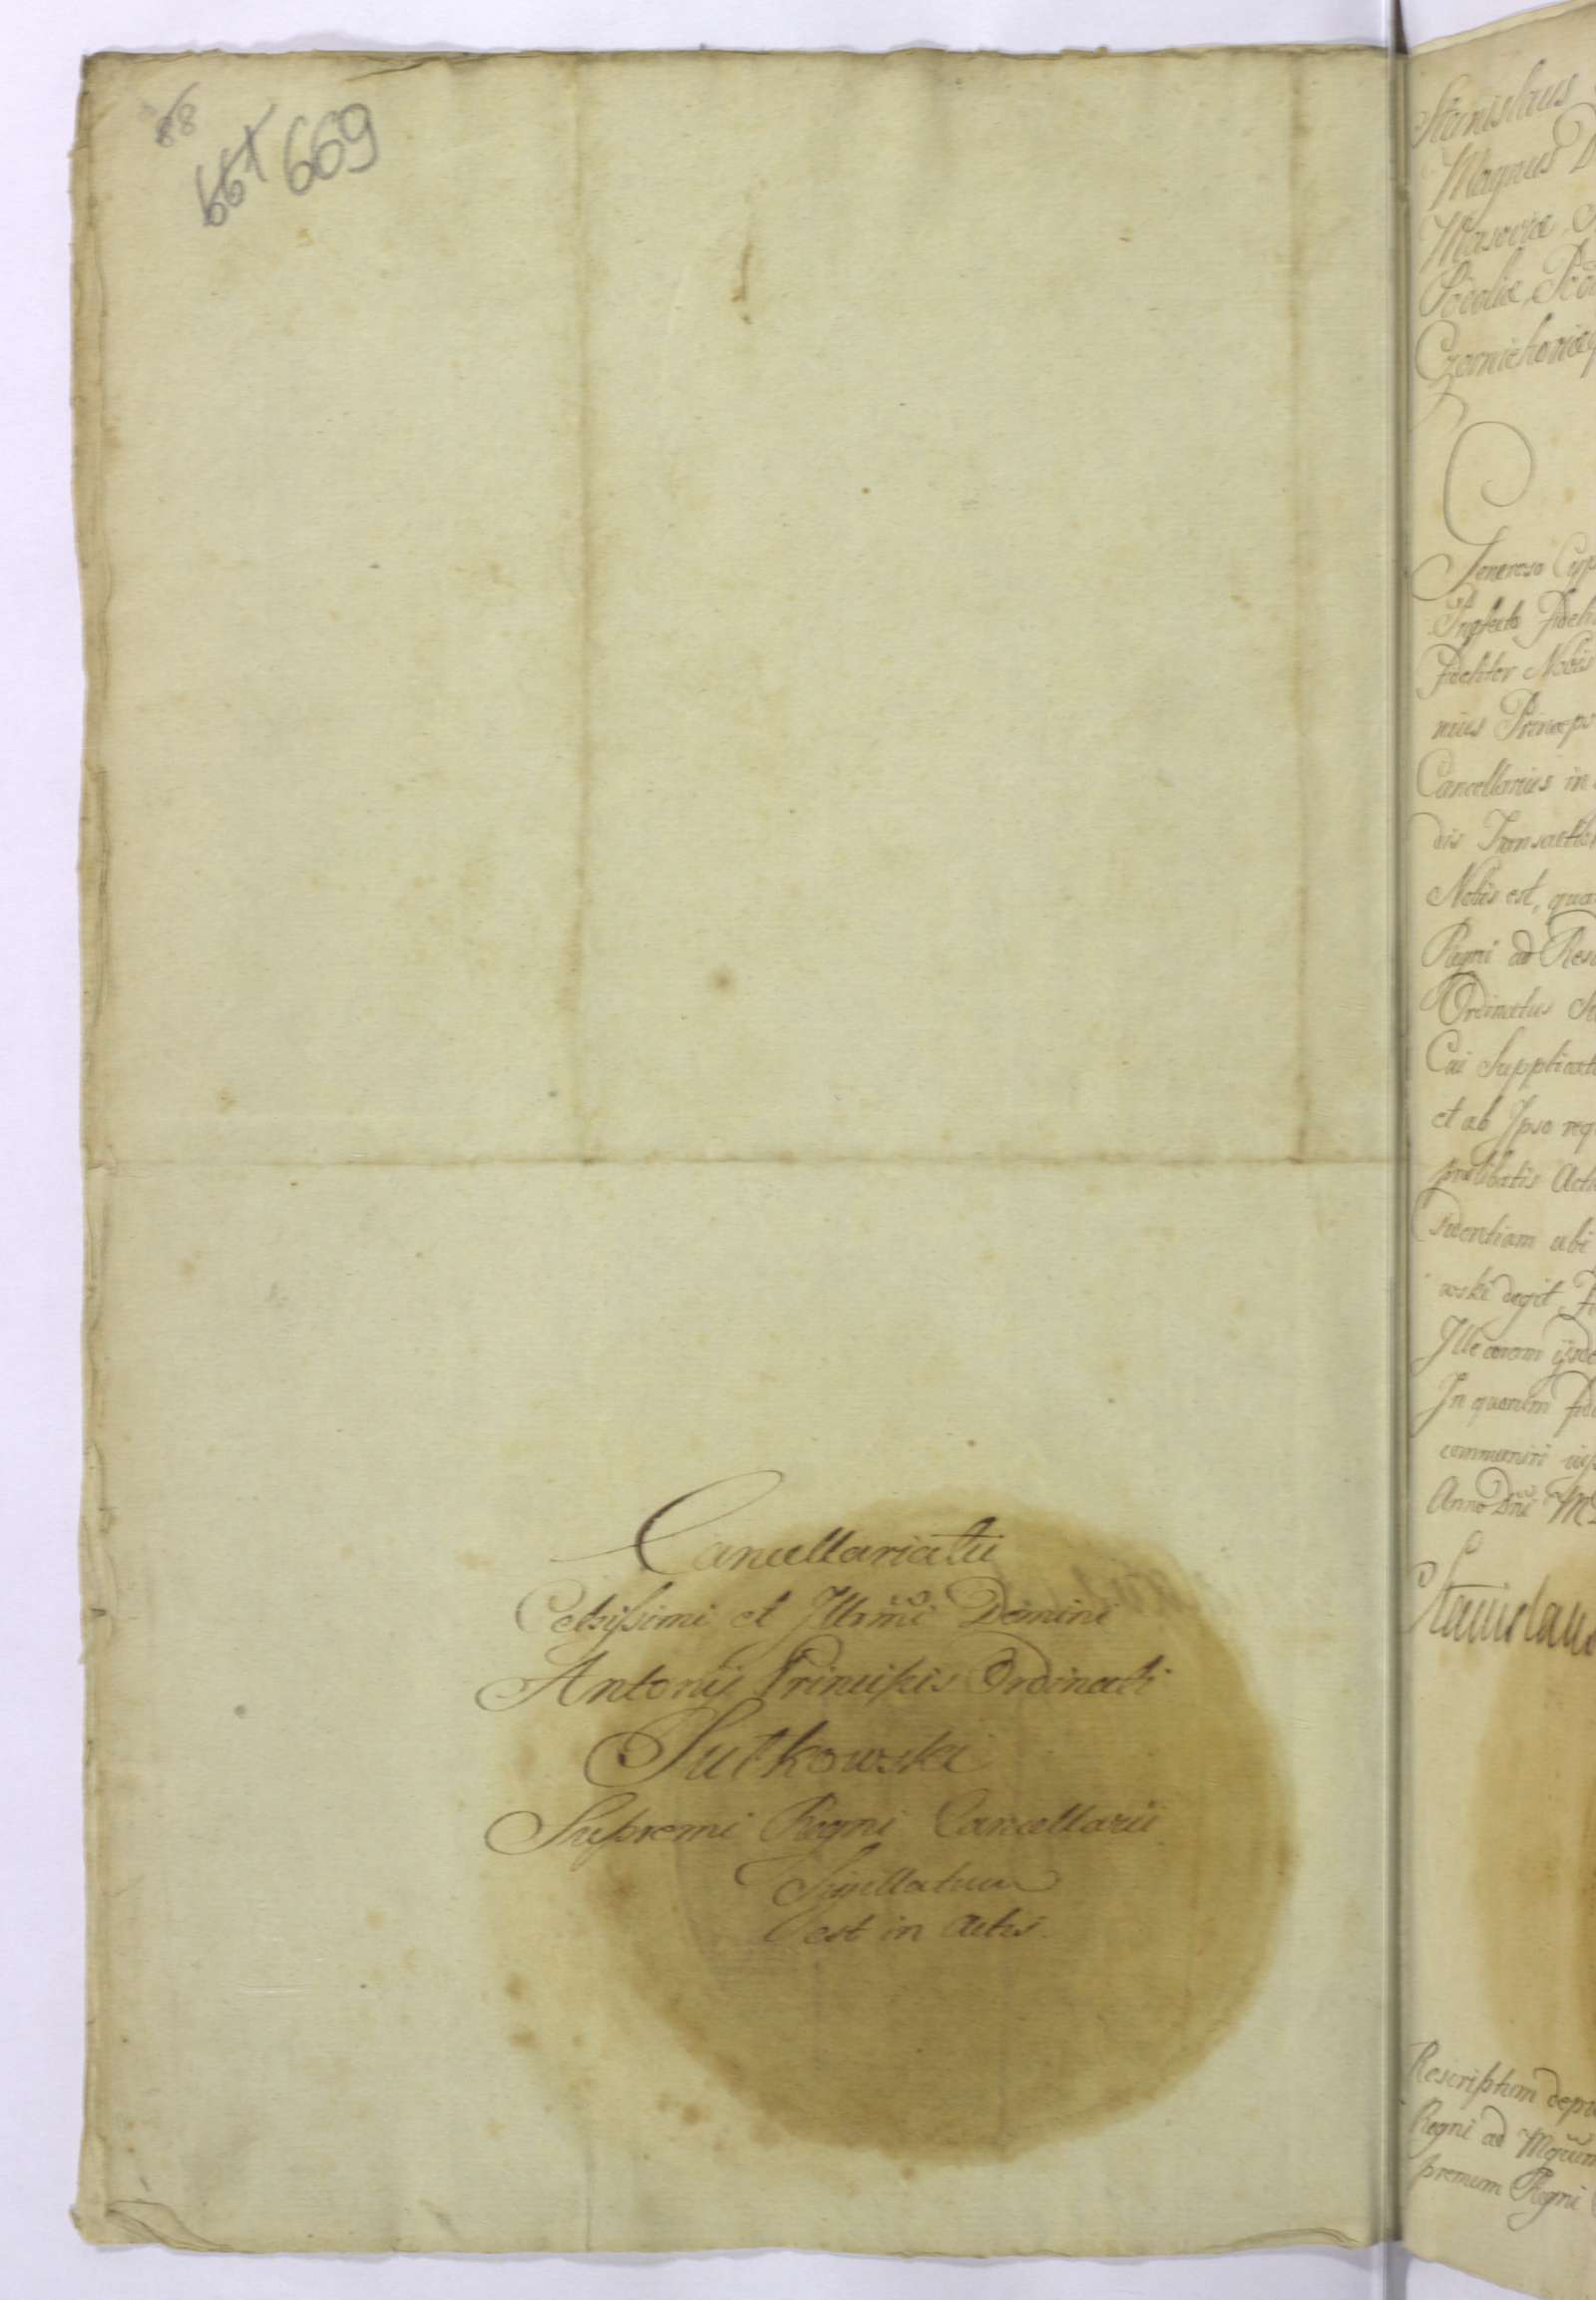 88
667 669
Cancellariatu
Celsissimi et Illrmi Domini
Antonii Principis Ordinati
Sułkowski
Supremi Regni Cancellarii
Sigillatum
est in Actis.
Stanislaus
Magnus D
Masoviæ
Podoliæ
Czernichoviæq
Generoso
fideli
Fideliter Nobis
nius Princeps
Cancellarius in
dis Transactio
Nobis est, qua
Regni ad Res
Ordinatus
Cui Supplicat
et ab Ipso req
prælibatis Act
ubi
wski degit
Ille coram
In quorum Fid
communiri
Anno Dni M
Stanislaus
Rescriptum
Regni ad
premum Regni